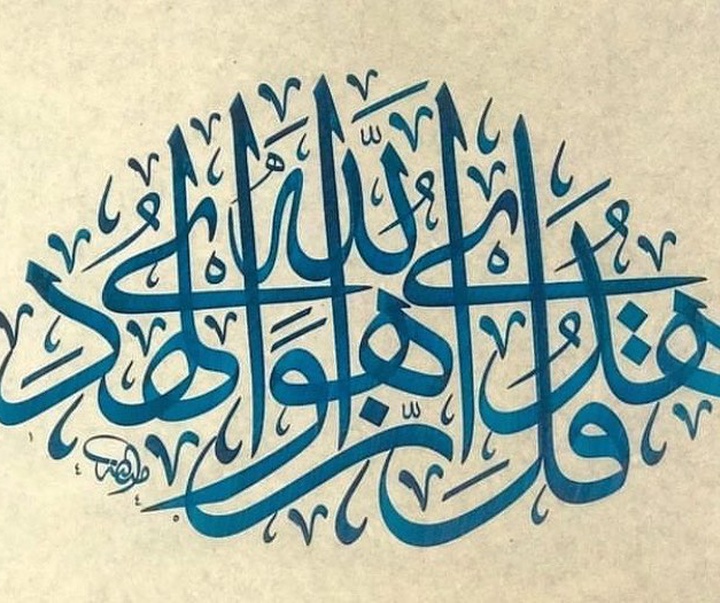 قل إنّ هدى اللّٰه هوَ الهدى